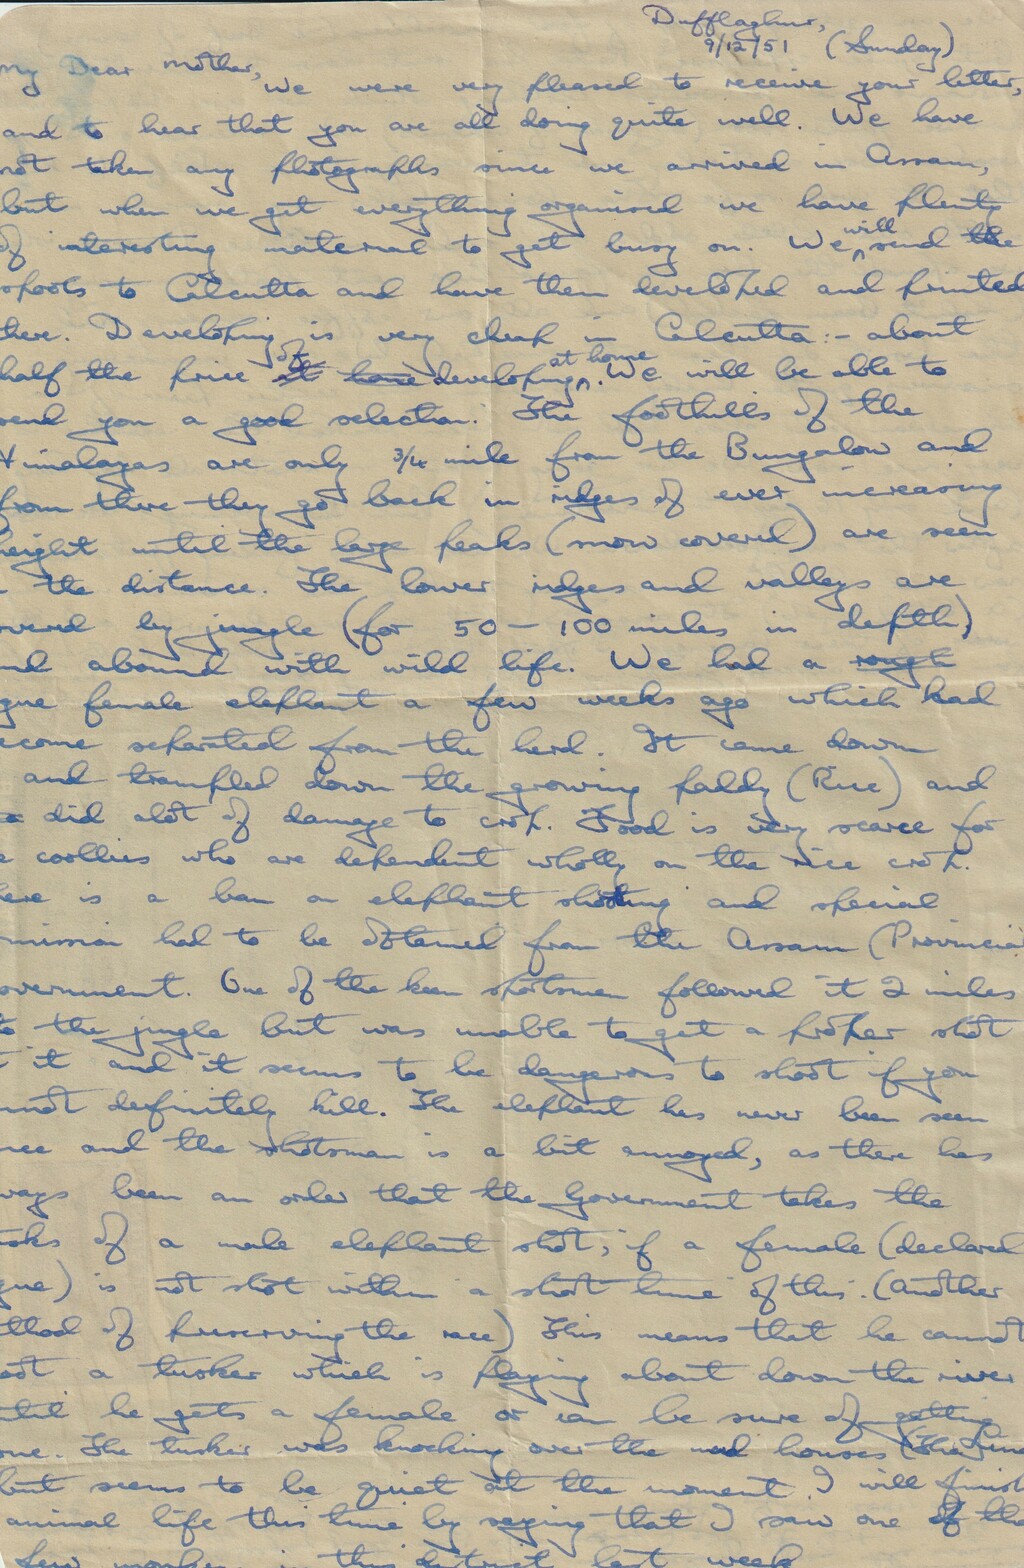 Dufflaghur,
9/12/51 (Sunday)
My Dear Mother,
We were very pleased to receive your letter,
and to hear that you are all doing quite well. We have
not taken any photographs since we arrived in Assam,
but when we get everything organised we have plenty
of interesting material to get busy on. We will send the
spools to Calcutta and have them developed and printed
there. Developing is very cheap in Calcutta :- about
half the price of developing at home. We will be able to
send you a good selection. The foothills of the
Himalayas are only 3/4 mile from the Bungalow and
from there they go back in ridges of ever increasing
height until the large peaks (snow covered) are seen
the distance. The lower ridges and valleys are
vered by jungle (for 50 - 100 miles in depth)
nd abound with wild life. We had a rough
gue female elephant a few weeks ago which had
ecome separated from the herd. It came down
and trampled down the growing paddy (Rice) and
did alot of damage to crop. Food is very scarce for
e coolies who are dependent wholly on the rice crop.
here is a ban on elephant shooting and special
mission had to be obtained from the Assam (Provincial
overnment. One of the keen sportsmen followed it 2 miles
to the jungle but was unable to get a proper shot
t it and it seems to be dangerous to shoot if you
nnot definitely kill. The elephant has never been seen
nce and the shotsman is a bit annoyed, as there has
ways been an order that the Government takes the
sks of a male elephant shot, if a female (declared
gue) is not shot within a short time of this. (Another
thod of preserving the race) This means that he cannot
oot a tusker which is playing about down the river
ntil he gets a female or can be sure of getting
one. The tusker was knocking over the mud houses
but seems to be quiet at the moment. I will finish
animal life this time by saying that I saw one of the
few monkeys in this district last week